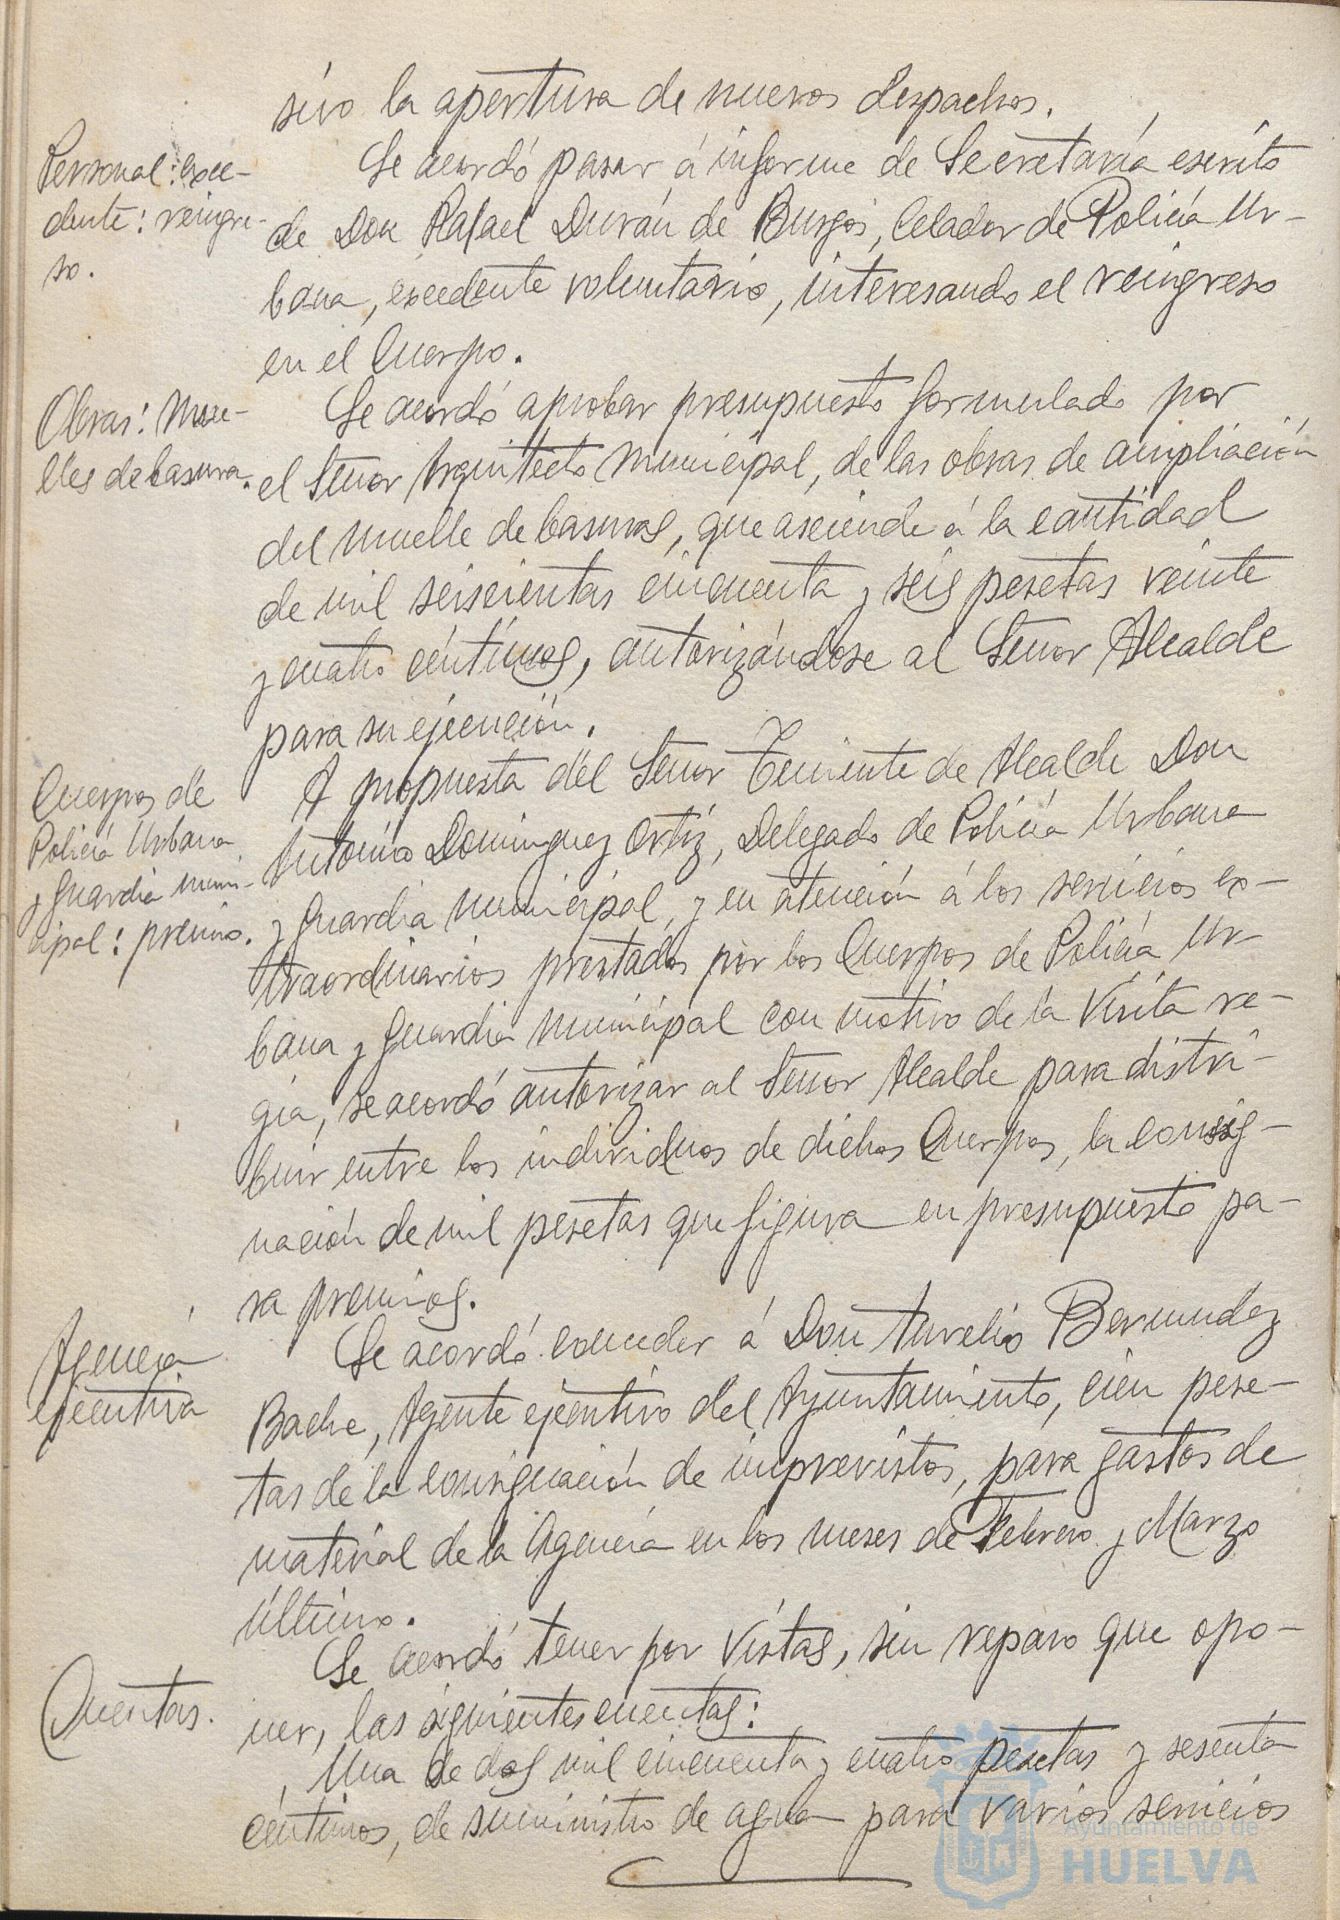 sivo la apertura de nuevos despachos.
Personal: exce-
dente: reingre-
so.
Se acordó pasar á informe de Secretaría escrito
de Don Rafael Durán de Burgos, Celador de Policía Ur-
bana, excedente voluntario, interesando el reingreso
en el Cuerpo.
Obras: Mue-
lles de basura.
Se acordó aprobar presupuesto formulado por
el Señor Arquitecto Municipal, de las obras de ampliación
del muelle de basuras, que asciende á la cantidad
de mil seiscientas cincuenta y seis pesetas veinte
y cuatro céntimos, autorizándose al Señor Alcalde
para su ejecución.
Cuerpos de
Policía Urbana
y Guardia muni-
cipal: premio.
A propuesta del Señor Teniente de Alcalde Don
Antonio Dominguez Ortiz, Delegado de Policía Urbana
y Guardia municipal, y en atención á los servicios ex-
traordinarios prestados por los Cuerpos de Policía Ur-
bana y Guardia Municipal con motivo de la Visita re-
gia, se acordó autorizar al Señor Alcalde para distri-
buir entre los individuos de dichos Cuerpos, la consig-
nación de mil pesetas que figura en presupuesto pa-
ra premios.
Agencia
ejecutiva
Se acordó conceder á Don Aurelio Bermudez
Bache, Agente ejecutivo del Ayuntamiento, cien pese-
tas de la consignación de imprevistos, para gastos de
material de la Agencia en los meses de Febrero y Marzo
último.
Cuentas.
Se acordó tener por vistas, sin reparo que opo-
ner, las siguientes cuentas:
Una de dos mil cincuenta y cuatro pesetas y sesenta
céntimos, de suministro de agua para varios servicios
Ayuntamiento de
HUELVA